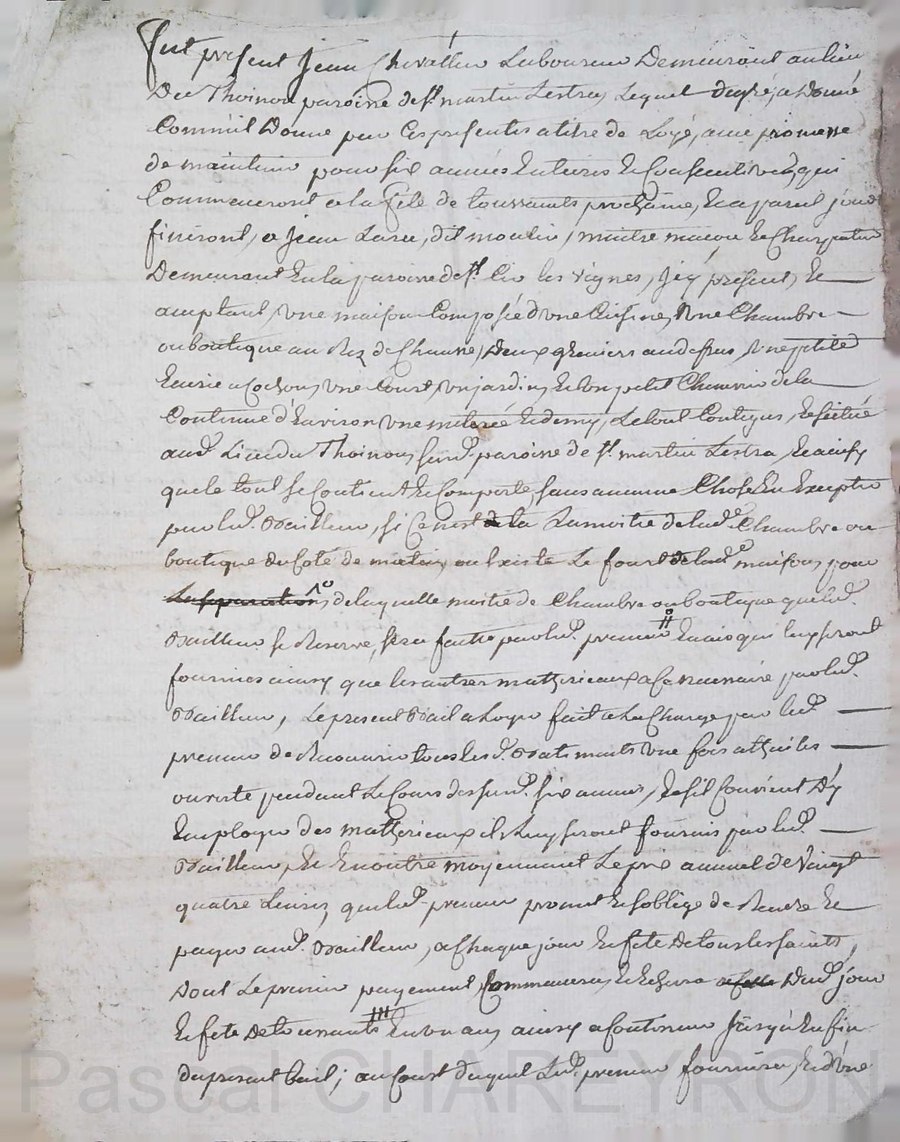 fut présent Jean Chevallier Laboureur Demeurant au lieu
Du Thoinon paroisse de st. martin Lestra, Lequel degré, a Donné
Comm'il Donne par Ces presentes a titre de Loyé, avec promesse
de maintenir pour six années Entieres Et Consecutives, qui
Commenceront a la fête de toussaints prochaine, Et a pareil jour
finiront, a Jean dit moulin, maitre macon Et Charpentier
Demeurant En la paroisse de st. Cir les vignes, Icy présent, Et
acceptant, une maison Composée d'une Cuisine, Une Chambre
ou boutique au Rez de Chaussée, Deux greniers au dessus, Une petite
Ecurie a Cochons, une Court, un jardin, Et un petit Chenevier de la
Contenue d'Environ une Et demy, Le tout Contigus, Et situé
aud. Lieu du Thoinon, surd. paroisse de st. martin Lestra, Et ainsy
que le tout se Contient Et Comporte sans aucunne Chose En Excepter
par led. Bailleur, si Ce n'est la La moitié de lad. Chambre ou
boutique du Coté de matin, ou Existe Le four de lad. maison, pour
La separation de laquelle moitié de Chambre ou boutique que led.
Bailleur se Reserve, sera faitte par led. preneur En ais qui luy seront
fournies ainsy que les autres mathérieaux a Ce necessaire par led.
Bailleur, Le present Bail a Loyer fait a La Charge par led.
preneur de Recouvrir tous lesd. Batiments une fois a thuiles
pendant Le Cours desd. six années, Et s'il Convient D'y
Employer des mathérieaux ils Luy seront fournis par led.
Bailleur, Et En outre moyennant Le prix annuel de Vaingt
quatre Livres, que led. preneur promet Et s'oblige de Rendre Et
payer aud. Bailleur, a Chaque jour Et fete De tous les saints,
Dont Le premier payement, Commencera, Et Echerra Dud. jour
Et fete De toussaints En un an, ainsy a Continuer Jusqu'a En fin
du present bail; au Court duquel Led. preneur fournira, Et d'une
Pascal CHAREYRON